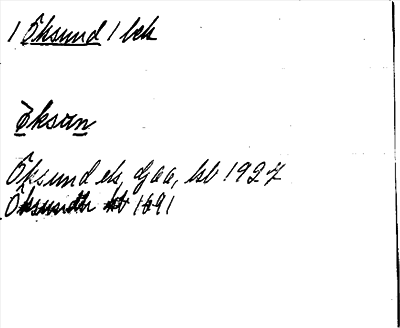 1 Öksund 1 bek
Öksan
Öksund ek, djaa, kb 1927
Öksundh kb 1691